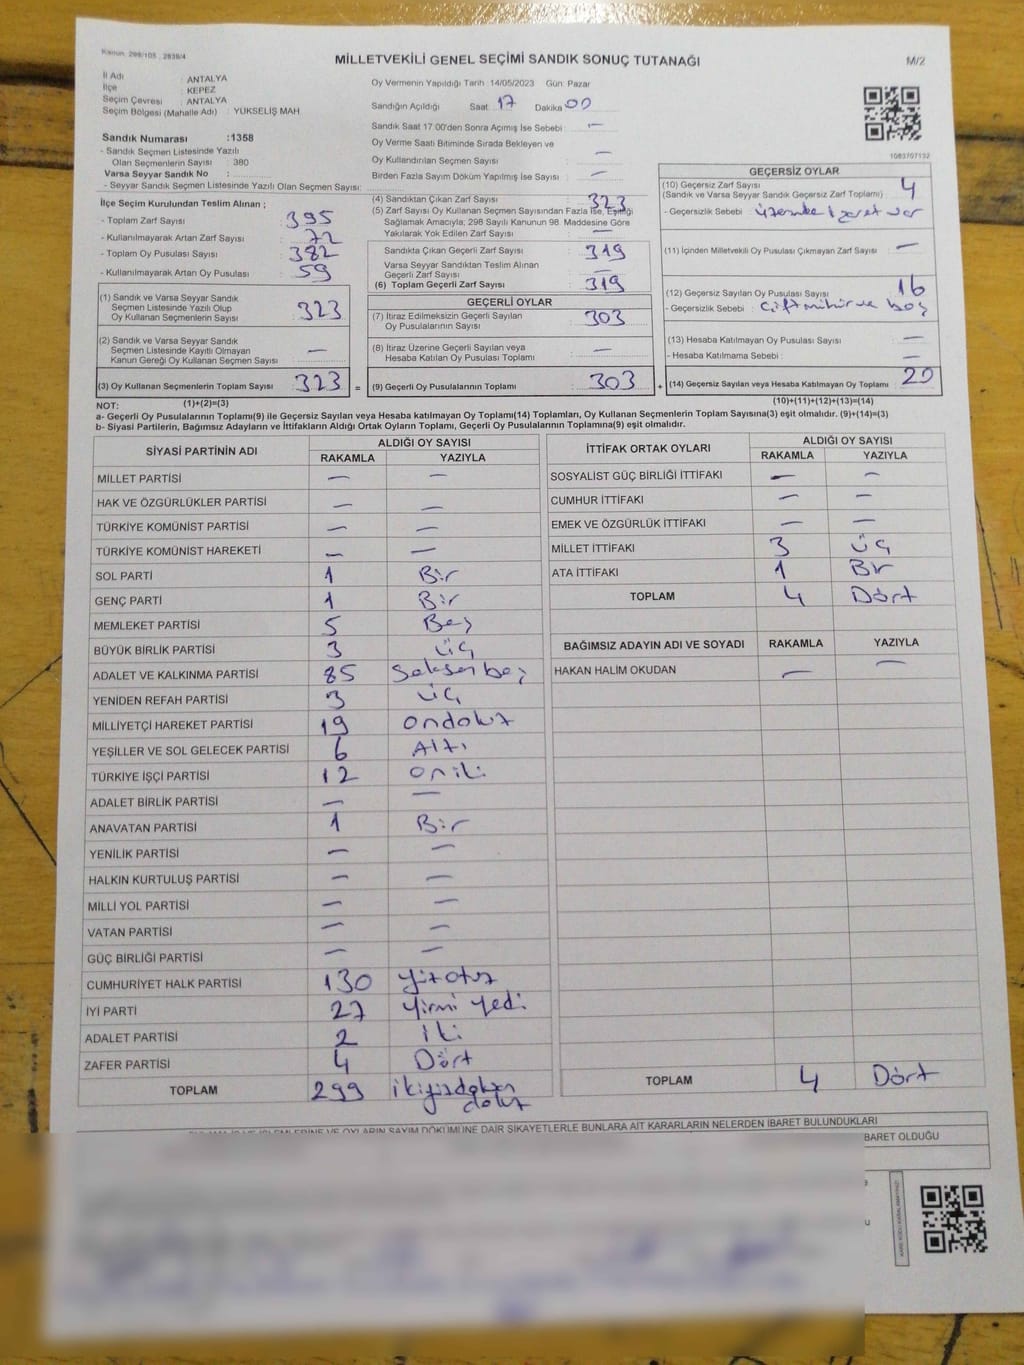 Kanun: 298/105 , 2839/4
MİLLETVEKİLİ GENEL SEÇİMİ SANDIK SONUÇ TUTANAĞI
M/2
İl Adı : ANTALYA
İlçe : KEPEZ
Seçim Çevresi : ANTALYA
Seçim Bölgesi (Mahalle Adı) : YÜKSELİŞ MAH
Sandık Numarası :1358
- Sandık Seçmen Listesinde Yazılı
Olan Seçmenlerin Sayısı : 380
Varsa Seyyar Sandık No :
- Seyyar Sandık Seçmen Listesinde Yazılı Olan Seçmen Sayısı:
Oy Vermenin Yapıldığı Tarih :14/05/2023 Gün Pazar
Sandığın Açıldığı Saat 17 Dakika 00
Sandık Saat 17.00'den Sonra Açımış İse Sebebi : —
Oy Verme Saati Bitiminde Sırada Bekleyen ve
Oy Kullandırılan Seçmen Sayısı : —
Birden Fazla Sayım Döküm Yapılmış İse Sayısı : —
1083707132
İlçe Seçim Kurulundan Teslim Alınan ;
- Toplam Zarf Sayısı : 395
- Kullanılmayarak Artan Zarf Sayısı : 72
- Toplam Oy Pusulası Sayısı : 382
- Kullanılmayarak Artan Oy Pusulası : 59
(1) Sandık ve Varsa Seyyar Sandık
Seçmen Listesinde Yazılı Olup
Oy Kullanan Seçmenlerin Sayısı : 323
(2) Sandık ve Varsa Seyyar Sandık
Seçmen Listesinde Kayıtlı Olmayan
Kanun Gereği Oy Kullanan Seçmen Sayısı : —
(3) Oy Kullanan Seçmenlerin Toplam Sayısı : 323 =
(4) Sandıktan Çıkan Zarf Sayısı : 323
(5) Zarf Sayısı Oy Kullanan Seçmen Sayısından Fazla İse, Eşitliği
Sağlamak Amacıyla; 298 Sayılı Kanunun 98. Maddesine Göre
Yakılarak Yok Edilen Zarf Sayısı : —
Sandıkta Çıkan Geçerli Zarf Sayısı : 319
Varsa Seyyar Sandıktan Teslim Alınan
Geçerli Zarf Sayısı : —
(6) Toplam Geçerli Zarf Sayısı : 319
GEÇERLİ OYLAR
(7) İtiraz Edilmeksizin Geçerli Sayılan
Oy Pusulalarının Sayısı : 303
(8) İtiraz Üzerine Geçerli Sayılan veya
Hesaba Katılan Oy Pusulası Toplamı : —
(9) Geçerli Oy Pusulalarının Toplamı : 303 +
GEÇERSİZ OYLAR
(10) Geçersiz Zarf Sayısı
(Sandık ve Varsa Seyyar Sandık Geçersiz Zarf Toplamı) : 4
- Geçersizlik Sebebi : üzerinde işaret var
(11) İçinden Milletvekili Oy Pusulası Çıkmayan Zarf Sayısı : —
(12) Geçersiz Sayılan Oy Pusulası Sayısı : 16
- Geçersizlik Sebebi : Çift mühür ve boş
(13) Hesaba Katılmayan Oy Pusulası Sayısı : —
- Hesaba Katılmama Sebebi : —
(14) Geçersiz Sayılan veya Hesaba Katılmayan Oy Toplamı : 20
NOT: (1)+(2)=(3)
(10)+(11)+(12)+(13)=(14)
a- Geçerli Oy Pusulalarının Toplamı(9) ile Geçersiz Sayılan veya Hesaba katılmayan Oy Toplamı(14) Toplamları, Oy Kullanan Seçmenlerin Toplam Sayısına(3) eşit olmalıdır. (9)+(14)=(3)
b- Siyasi Partilerin, Bağımsız Adayların ve İttifakların Aldığı Ortak Oyların Toplamı, Geçerli Oy Pusulalarının Toplamına(9) eşit olmalıdır.
SİYASİ PARTİNİN ADI ALDIĞI OY SAYISI
RAKAMLA YAZIYLA
MİLLET PARTİSİ — —
HAK VE ÖZGÜRLÜKLER PARTİSİ — —
TÜRKİYE KOMÜNİST PARTİSİ — —
TÜRKİYE KOMÜNİST HAREKETİ — —
SOL PARTİ 1 Bir
GENÇ PARTİ 1 Bir
MEMLEKET PARTİSİ 5 Beş
BÜYÜK BİRLİK PARTİSİ 3 üç
ADALET VE KALKINMA PARTİSİ 85 Seksen beş
YENİDEN REFAH PARTİSİ 3 üç
MİLLİYETÇİ HAREKET PARTİSİ 19 ondokuz
YEŞİLLER VE SOL GELECEK PARTİSİ 6 Altı
TÜRKİYE İŞÇİ PARTİSİ 12 oniki
ADALET BİRLİK PARTİSİ — —
ANAVATAN PARTİSİ 1 Bir
YENİLİK PARTİSİ — —
HALKIN KURTULUŞ PARTİSİ — —
MİLLİ YOL PARTİSİ — —
VATAN PARTİSİ — —
GÜÇ BİRLİĞİ PARTİSİ — —
CUMHURİYET HALK PARTİSİ 130 yüzotuz
İYİ PARTİ 27 yirmi yedi
ADALET PARTİSİ 2 iki
ZAFER PARTİSİ 4 Dört
TOPLAM 299 ikiyüzdoksan
dokuz
İTTİFAK ORTAK OYLARI ALDIĞI OY SAYISI
RAKAMLA YAZIYLA
SOSYALİST GÜÇ BİRLİĞİ İTTİFAKI — —
CUMHUR İTTİFAKI — —
EMEK VE ÖZGÜRLÜK İTTİFAKI — —
MİLLET İTTİFAKI 3 üç
ATA İTTİFAKI 1 Bir
TOPLAM 4 Dört
BAĞIMSIZ ADAYIN ADI VE SOYADI RAKAMLA YAZIYLA
HAKAN HALİM OKUDAN — —
TOPLAM 4 Dört
OYLARIN SAYIM DÖKÜMÜNE DAİR ŞİKAYETLERLE BUNLARA AİT KARARLARIN NELERDEN İBARET BULUNDUKLARI
BARET OLDUĞU